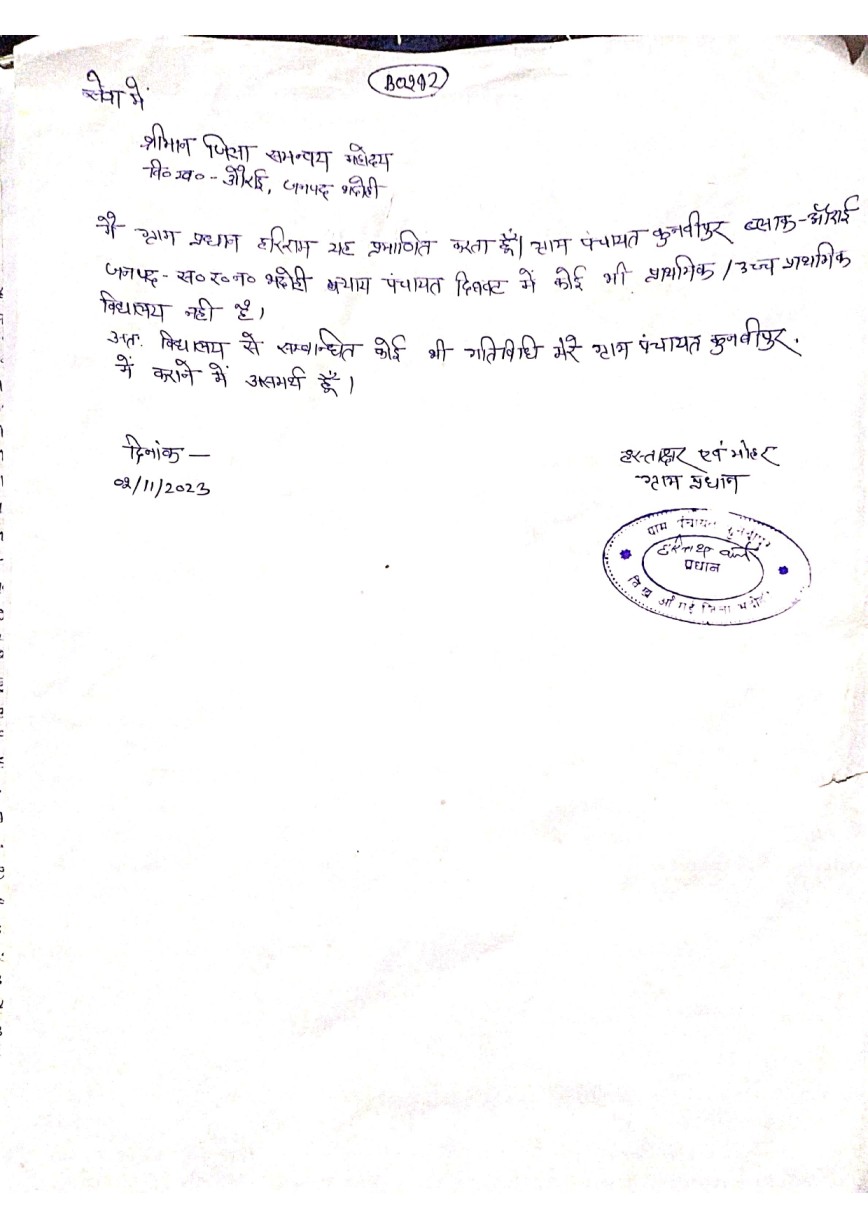 B0992
सेवा में
श्रीमान जिला समन्वय महोदय
वि०ख०-औराई, जनपद भदोही
मै ग्राम प्रधान हरिराम यह प्रमाणित करता हूँ। ग्राम पंचायत कुनबीपुर ब्लाक-औराई
जनपद- स०र०न० भदोही न्याय पंचायत में कोई भी प्राथमिक / उच्च प्राथमिक
विद्यालय नही है।
अतः विद्यालय से सम्बान्धित कोई भी गतिविधि मेरे ग्राम पंचायत कुनबीपुर.
में कराने में असमर्थ हूँ।
दिनांक —
02/11/2023
हस्ताक्षर एवं मोहर
ग्राम प्रधान
ग्राम पंचायत
प्रधान
वि ख औराई जिला भदोही